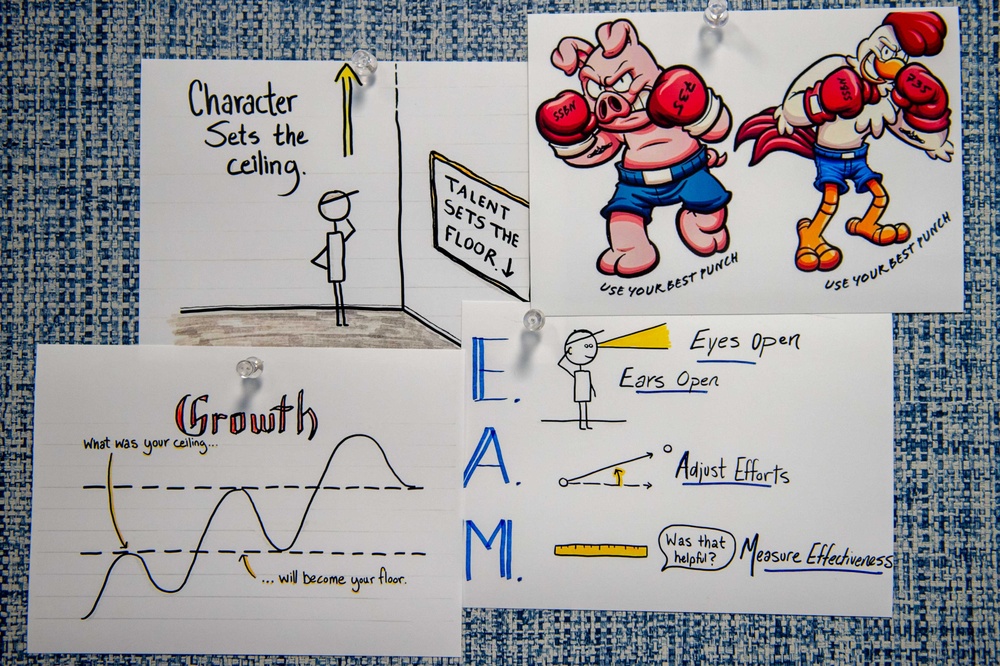 Character
Sets the
ceiling.
TALENT
SETS THE
FLOOR.
SSBN
735
USE YOUR BEST PUNCH
SSBN
735
USE YOUR BEST PUNCH
Growth
What was your ceiling...
... will become your floor.
E.
Eyes Open
Ears Open
A.
Adjust Efforts
M.
Was that
helpful?
Measure Effectiveness